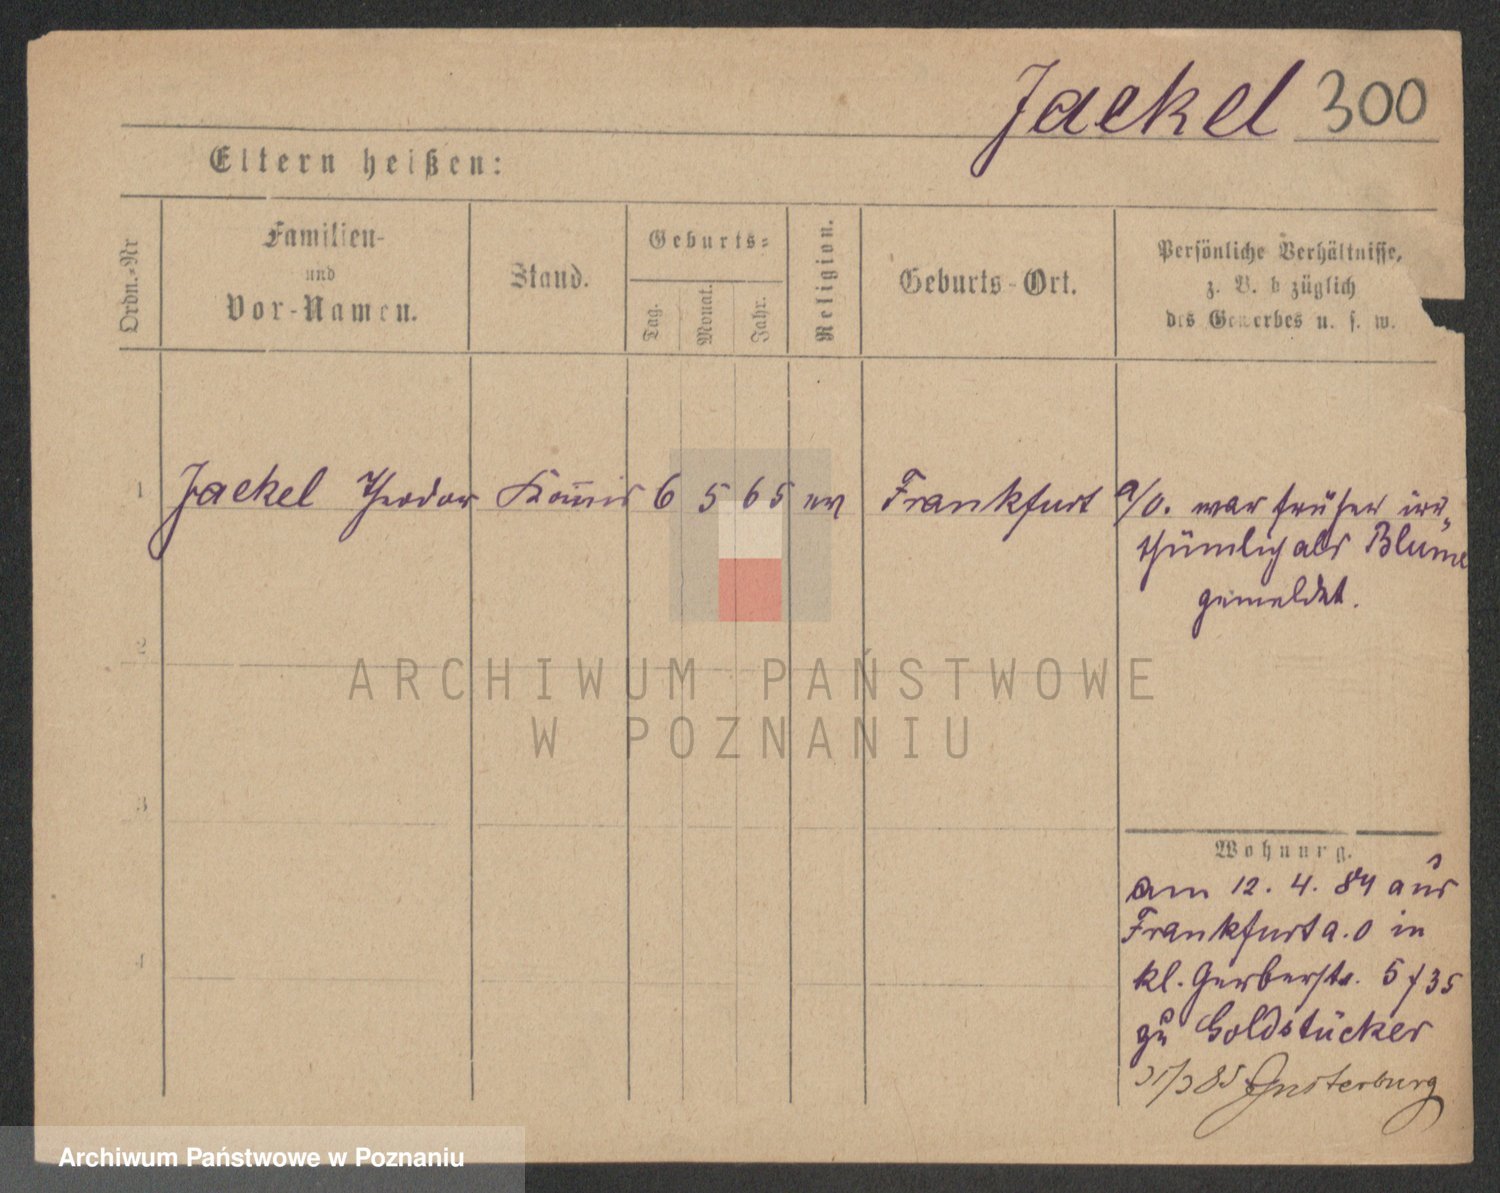 Jaekel 300
Eltern heißen:
Ordn.-Nr
Familien-
und
Vor-Namen.
Stand.
Geburts-
Tag.
Monat.
Jahr.
Religion.
Geburts-Ort.
Persönliche Verhältnisse,
z. B. bezüglich
des Gewerbes u. s. w.
1 Jaekel Theodor Kom̅is 6 5 65 ev Frankfurt a/O. war früher irr-
thümlich als Blume
gemeldet.
2
3
4
ARCHIWUM PAŃSTWOWE
W POZNANIU
Wohnung.
am 12. 4. 84 aus
Frankfurt a. O in
kl. Gerberstr. 5 f 35
zu Goldstücker
85 Insterburg
Archiwum Państwowe w Poznaniu